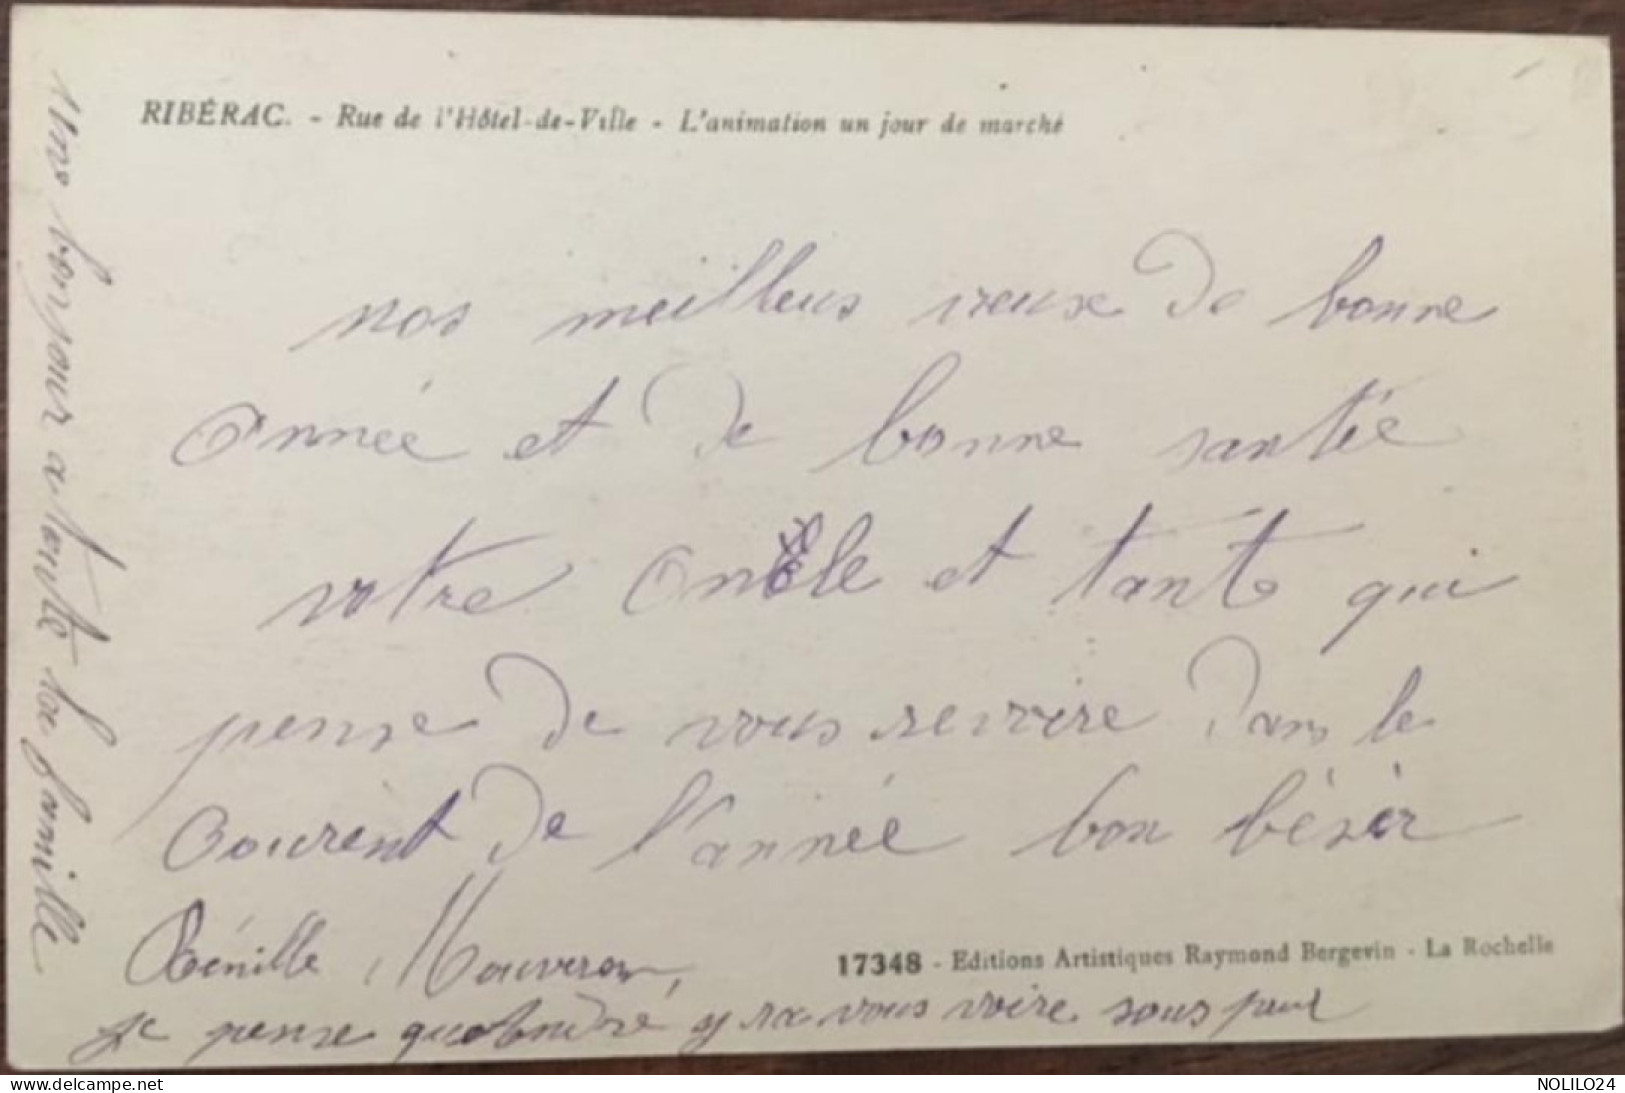 RIBÉRAC. - Rue de l'Hôtel-de-Ville - L'animation un jour de marché
nos meilleus veux de bonne
année et de bonne santée
votre oncle et tante qui
pense de vous revoire dans le
courent de l'année bon béser
Mouveron,
17348 - Editions Artistiques Raymond Bergevin - La Rochelle
je pense que andré y ra vous voire sous peut
un bonjour a toute la famille
www.delcampe.net
NOLILO24